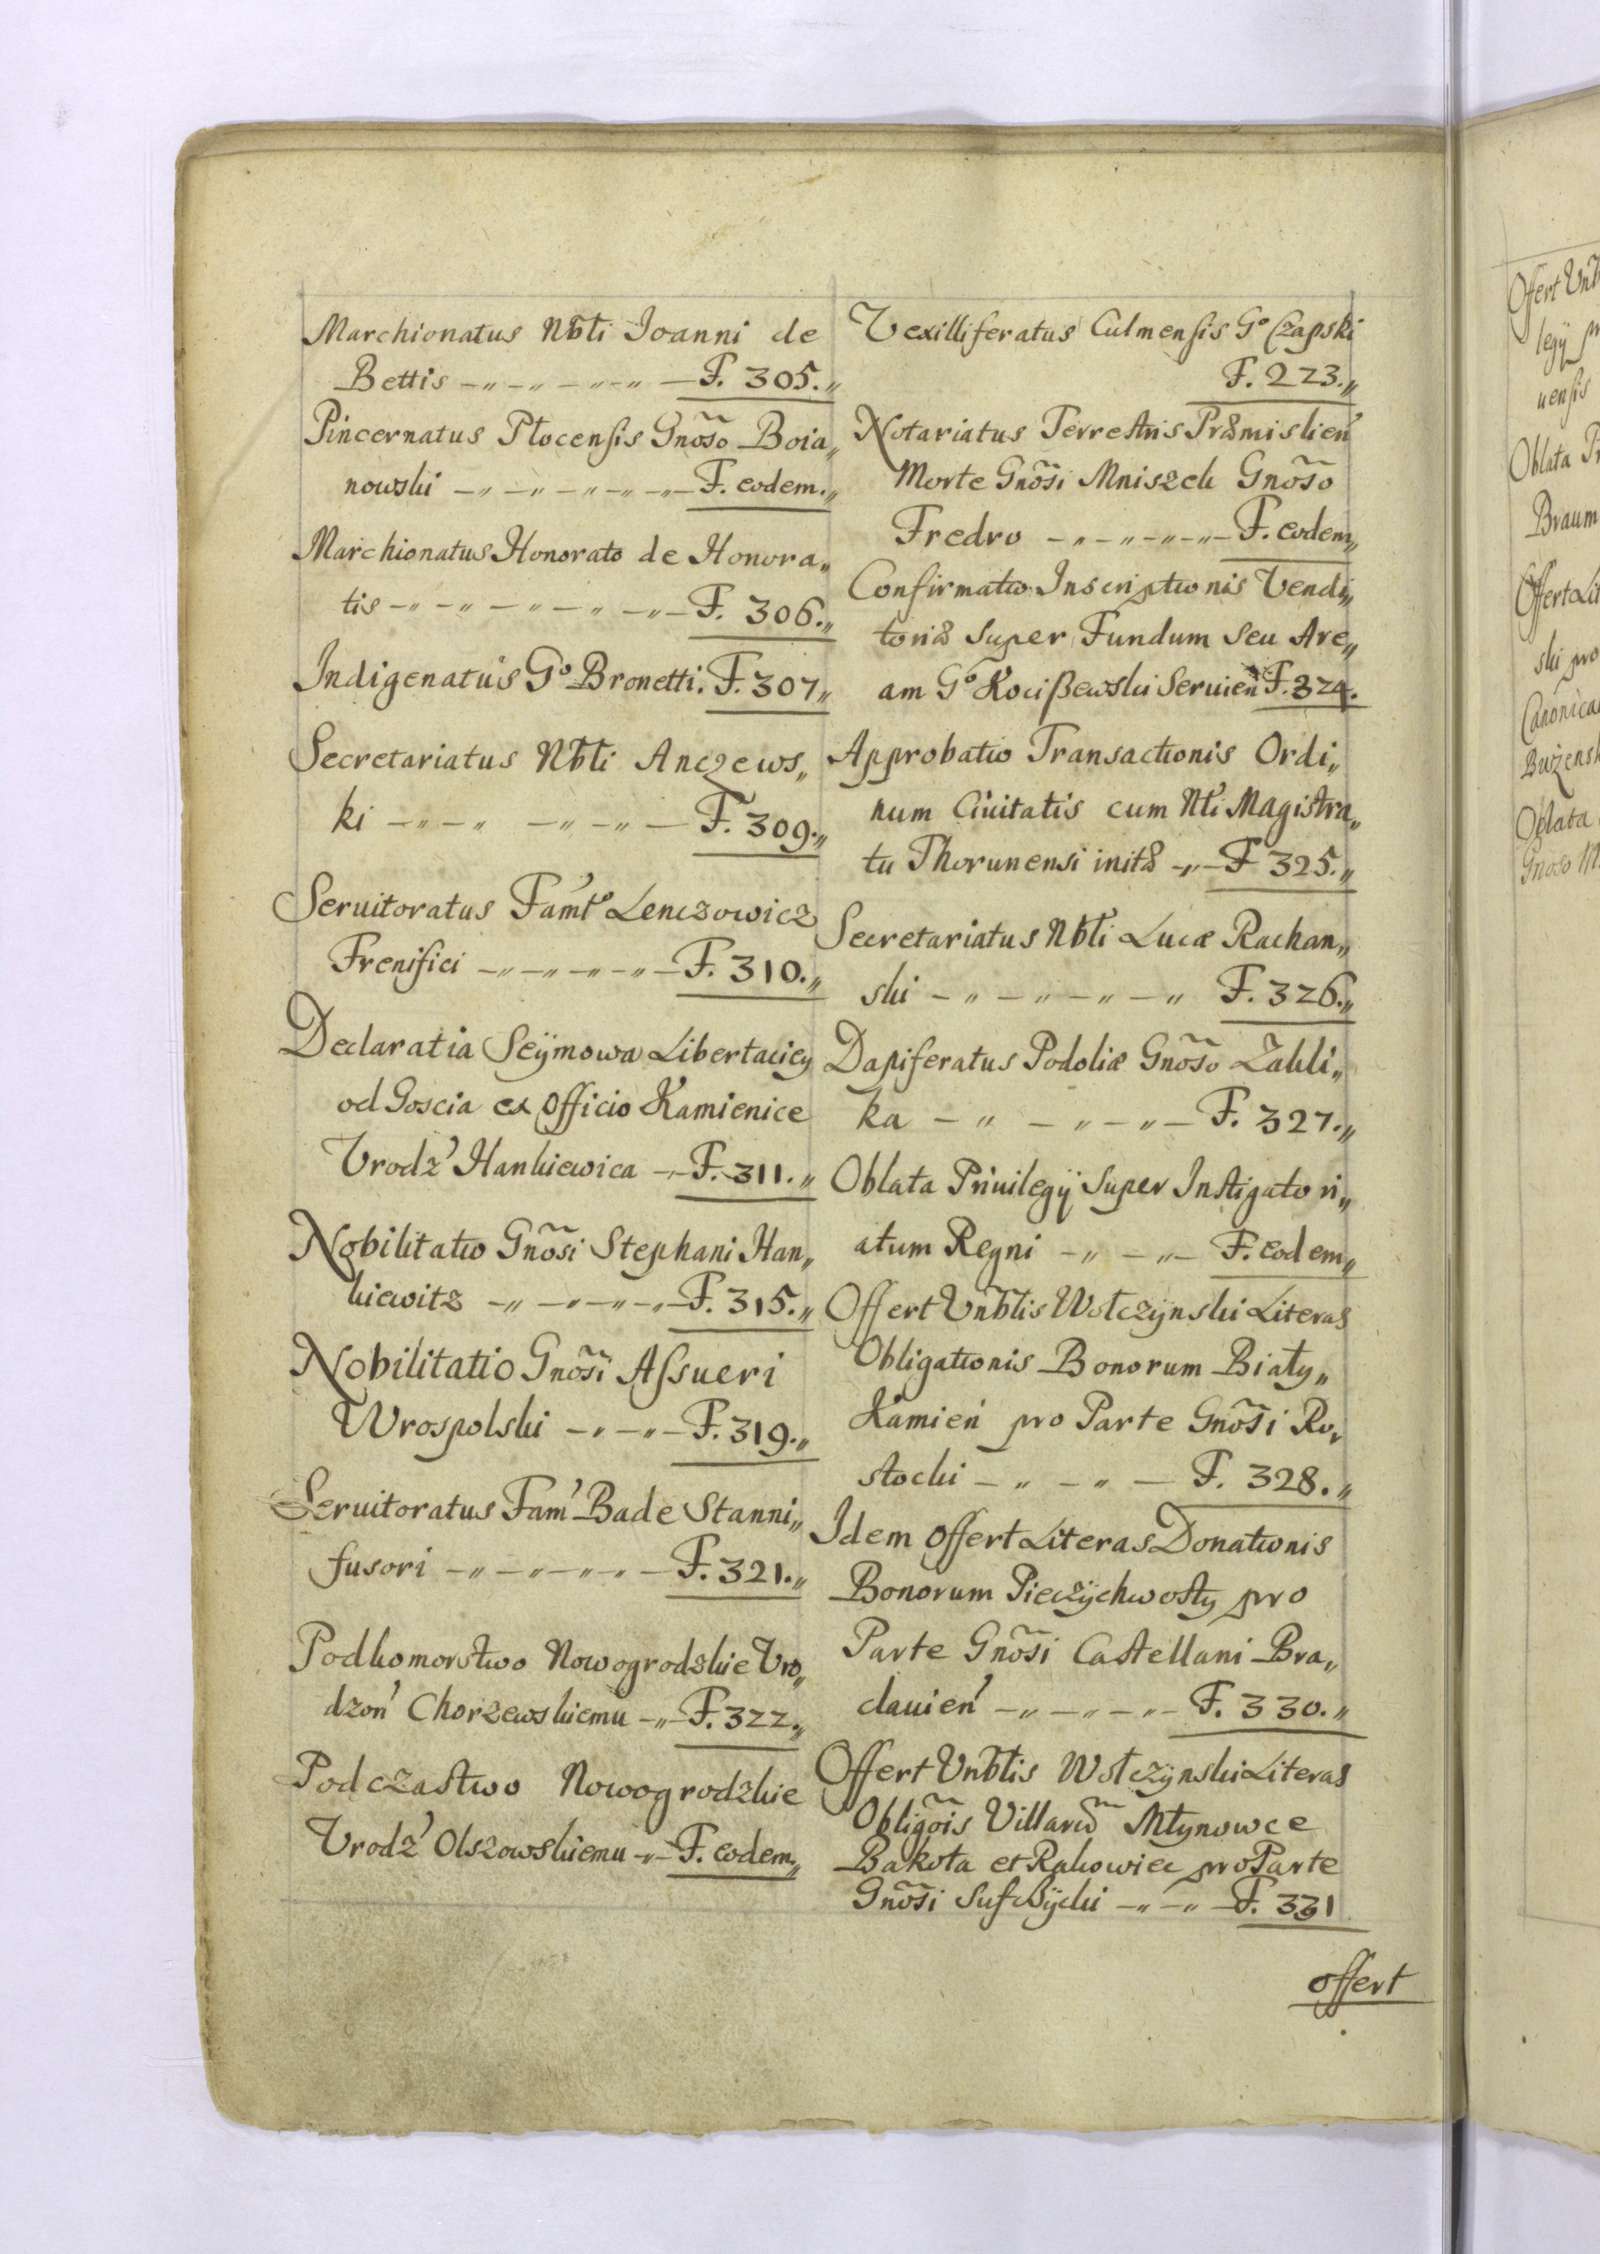 Marchionatus Nbli Joanni de
Bettis -„-„-„-„- F. 305.„
Pincernatus Płocensis Gnõso Boia„
nowski -„-„-„-„-„- F. eodem.„
Marchionatus Honorato de Honora„
tis -„-„-„-„-„- F. 306.„
Indigenatus Gº Bronetti. F. 307„
Secretariatus Nbli Anczews„
ki -„-„ -„-„- F. 309.„
Seruitoratus Famtº Lenczowicz
Frenifici -„-„-„-„- F. 310.„
Declaratia Seÿmowa Libertaciey
od Goscia ex Officio Kamienice
Vrodz' Hankiewica -„- F. 311.„
Nobilitatio Gnõsi Stephani Han„
kiewitz -„-„-„-„- F. 315.„
Nobilitatio Gnõsi Assueri
Wrospolski -„-„- F. 319.„
Seruitoratus Fam' Bade Stanni„
fusori -„-„-„-„- F. 321.„
Podkomorstwo Nowogrodzkie Vro„
dzon' Chorzewskiemu -„- F. 322.„
Podczastwo Nowogrodzkie
Vrodz' Olszowskiemu -„- F. eodem.„
Vexilliferatus Culmensis Gº Czapski
F. 223.„
Notariatus Terrestris Præmislien'
Morte Gnõsi Mniszek Gnõso
Fredro -„-„-„-„- F. eodem„
Confirmatio Inscriptionis Vendi„
toriæ super Fundum seu Are„
am Gº Kocißewski Seruien' F. 324.
Approbatio Transactionis Ordi„
num Ciuitatis cum Nli Magistra„
tu Thorunensi initæ -„- F 325.„
Secretariatus Nbli Lucæ Rachan„
ski -„-„-„-„ F. 326.„
Dapiferatus Podoliæ Gnõso Zakli„
ka -„ -„-„- F. 327.„
Oblata Priuilegÿ super Instigatori„
atum Regni -„ -„- F. eodem„
Offert Vnblis Wołczÿnski Literas
Obligationis Bonorum Biały„
Kamień pro Parte Gnõsi Ro„
stocki -„ -„- F. 328.„
Idem offert Literas Donationis
Bonorum Pieczÿchwosty pro
Parte Gnõsi Castellani Bra„
clauien' -„-„-„- F. 330.„
Offert Vnblis Wołczÿnski Literas
Obligõis Villarũ Młynowce
Bakota et Rakowiec pro Parte
Gnõsi -„-„- F. 331
offert
Offert
legÿ
uensis
Oblata
Braum
Offert
ski pro
Oblata
Gnoso